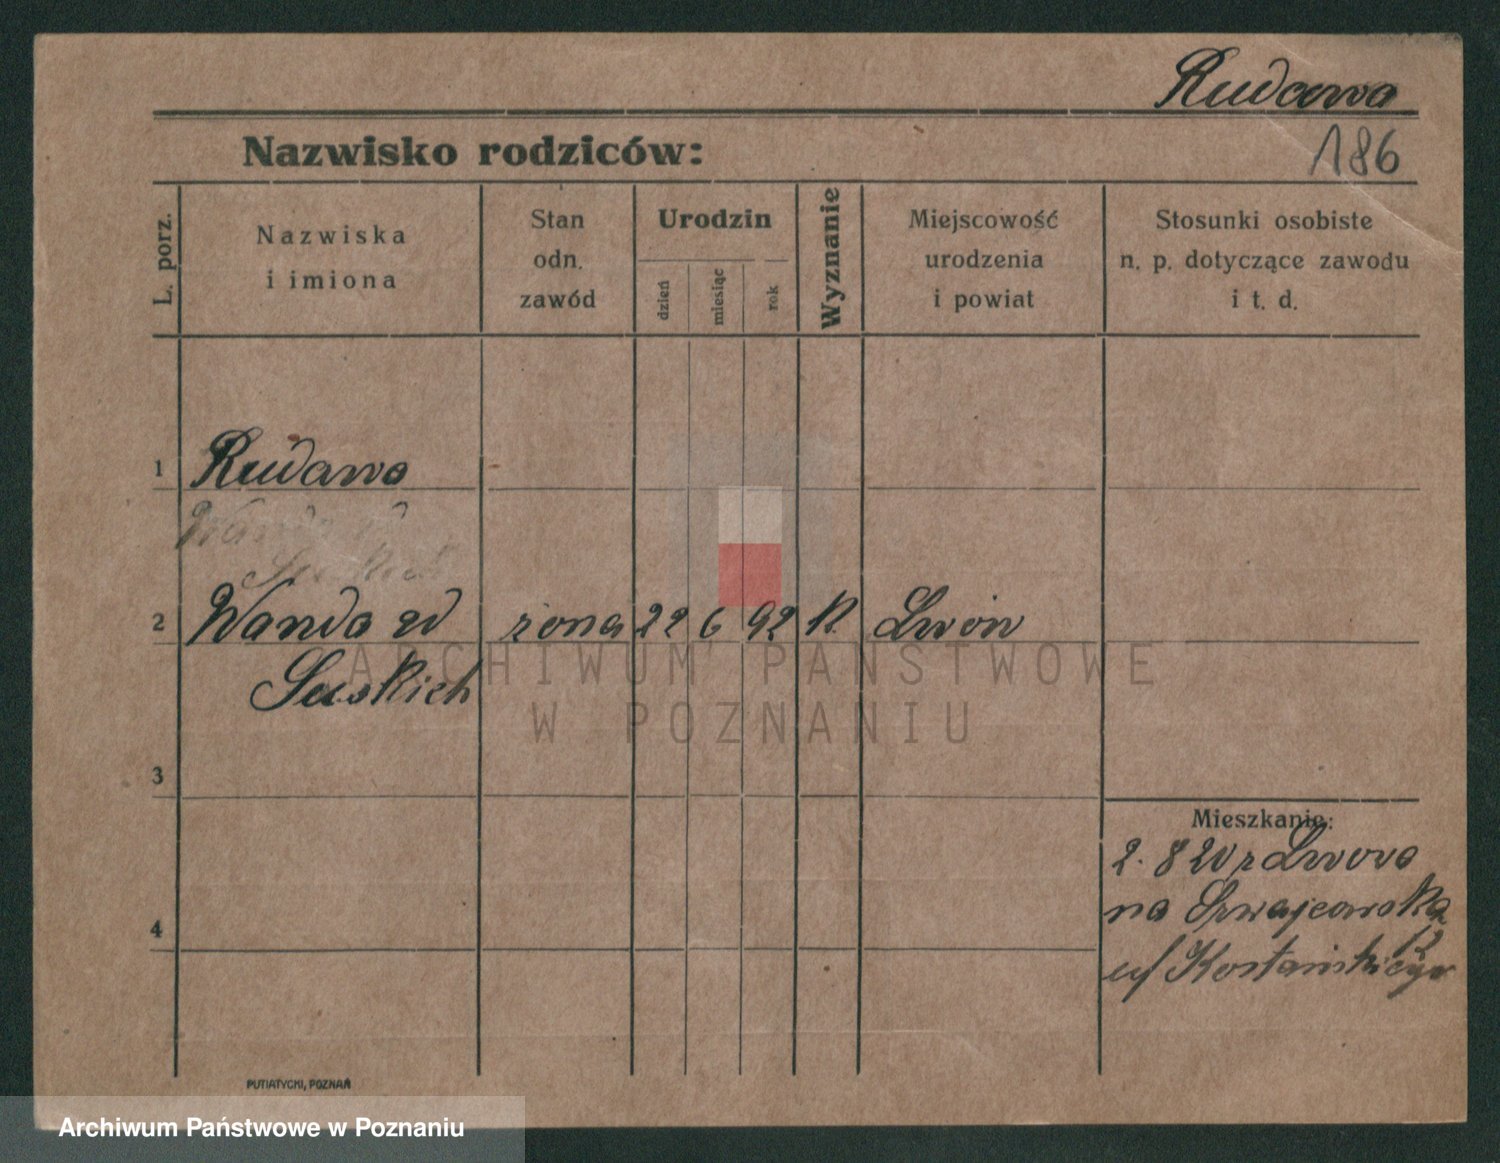 Rudcowa
186
Nazwisko rodziców:
L. porz.
Nazwiska
i imiona
Stan
odn.
zawód
Urodzin
dzień
miesiąc
rok
Wyznanie
Miejscowość
urodzenia
i powiat
Stosunki osobiste
n. p. dotyczące zawodu
i t. d.
1 Rudawa
Wanda
2 Wanda zd żona 22 6 92 K Lwów
Suskich
3
Mieszkanie:
2. 8 20 z Lwowa
na Szwajcarska
12
Kostańskiego
4
PUTIATYCKI, POZNAŃ
ARCHIWUM PAŃSTWOWE
W POZNANIU
Archiwum Państwowe w Poznaniu